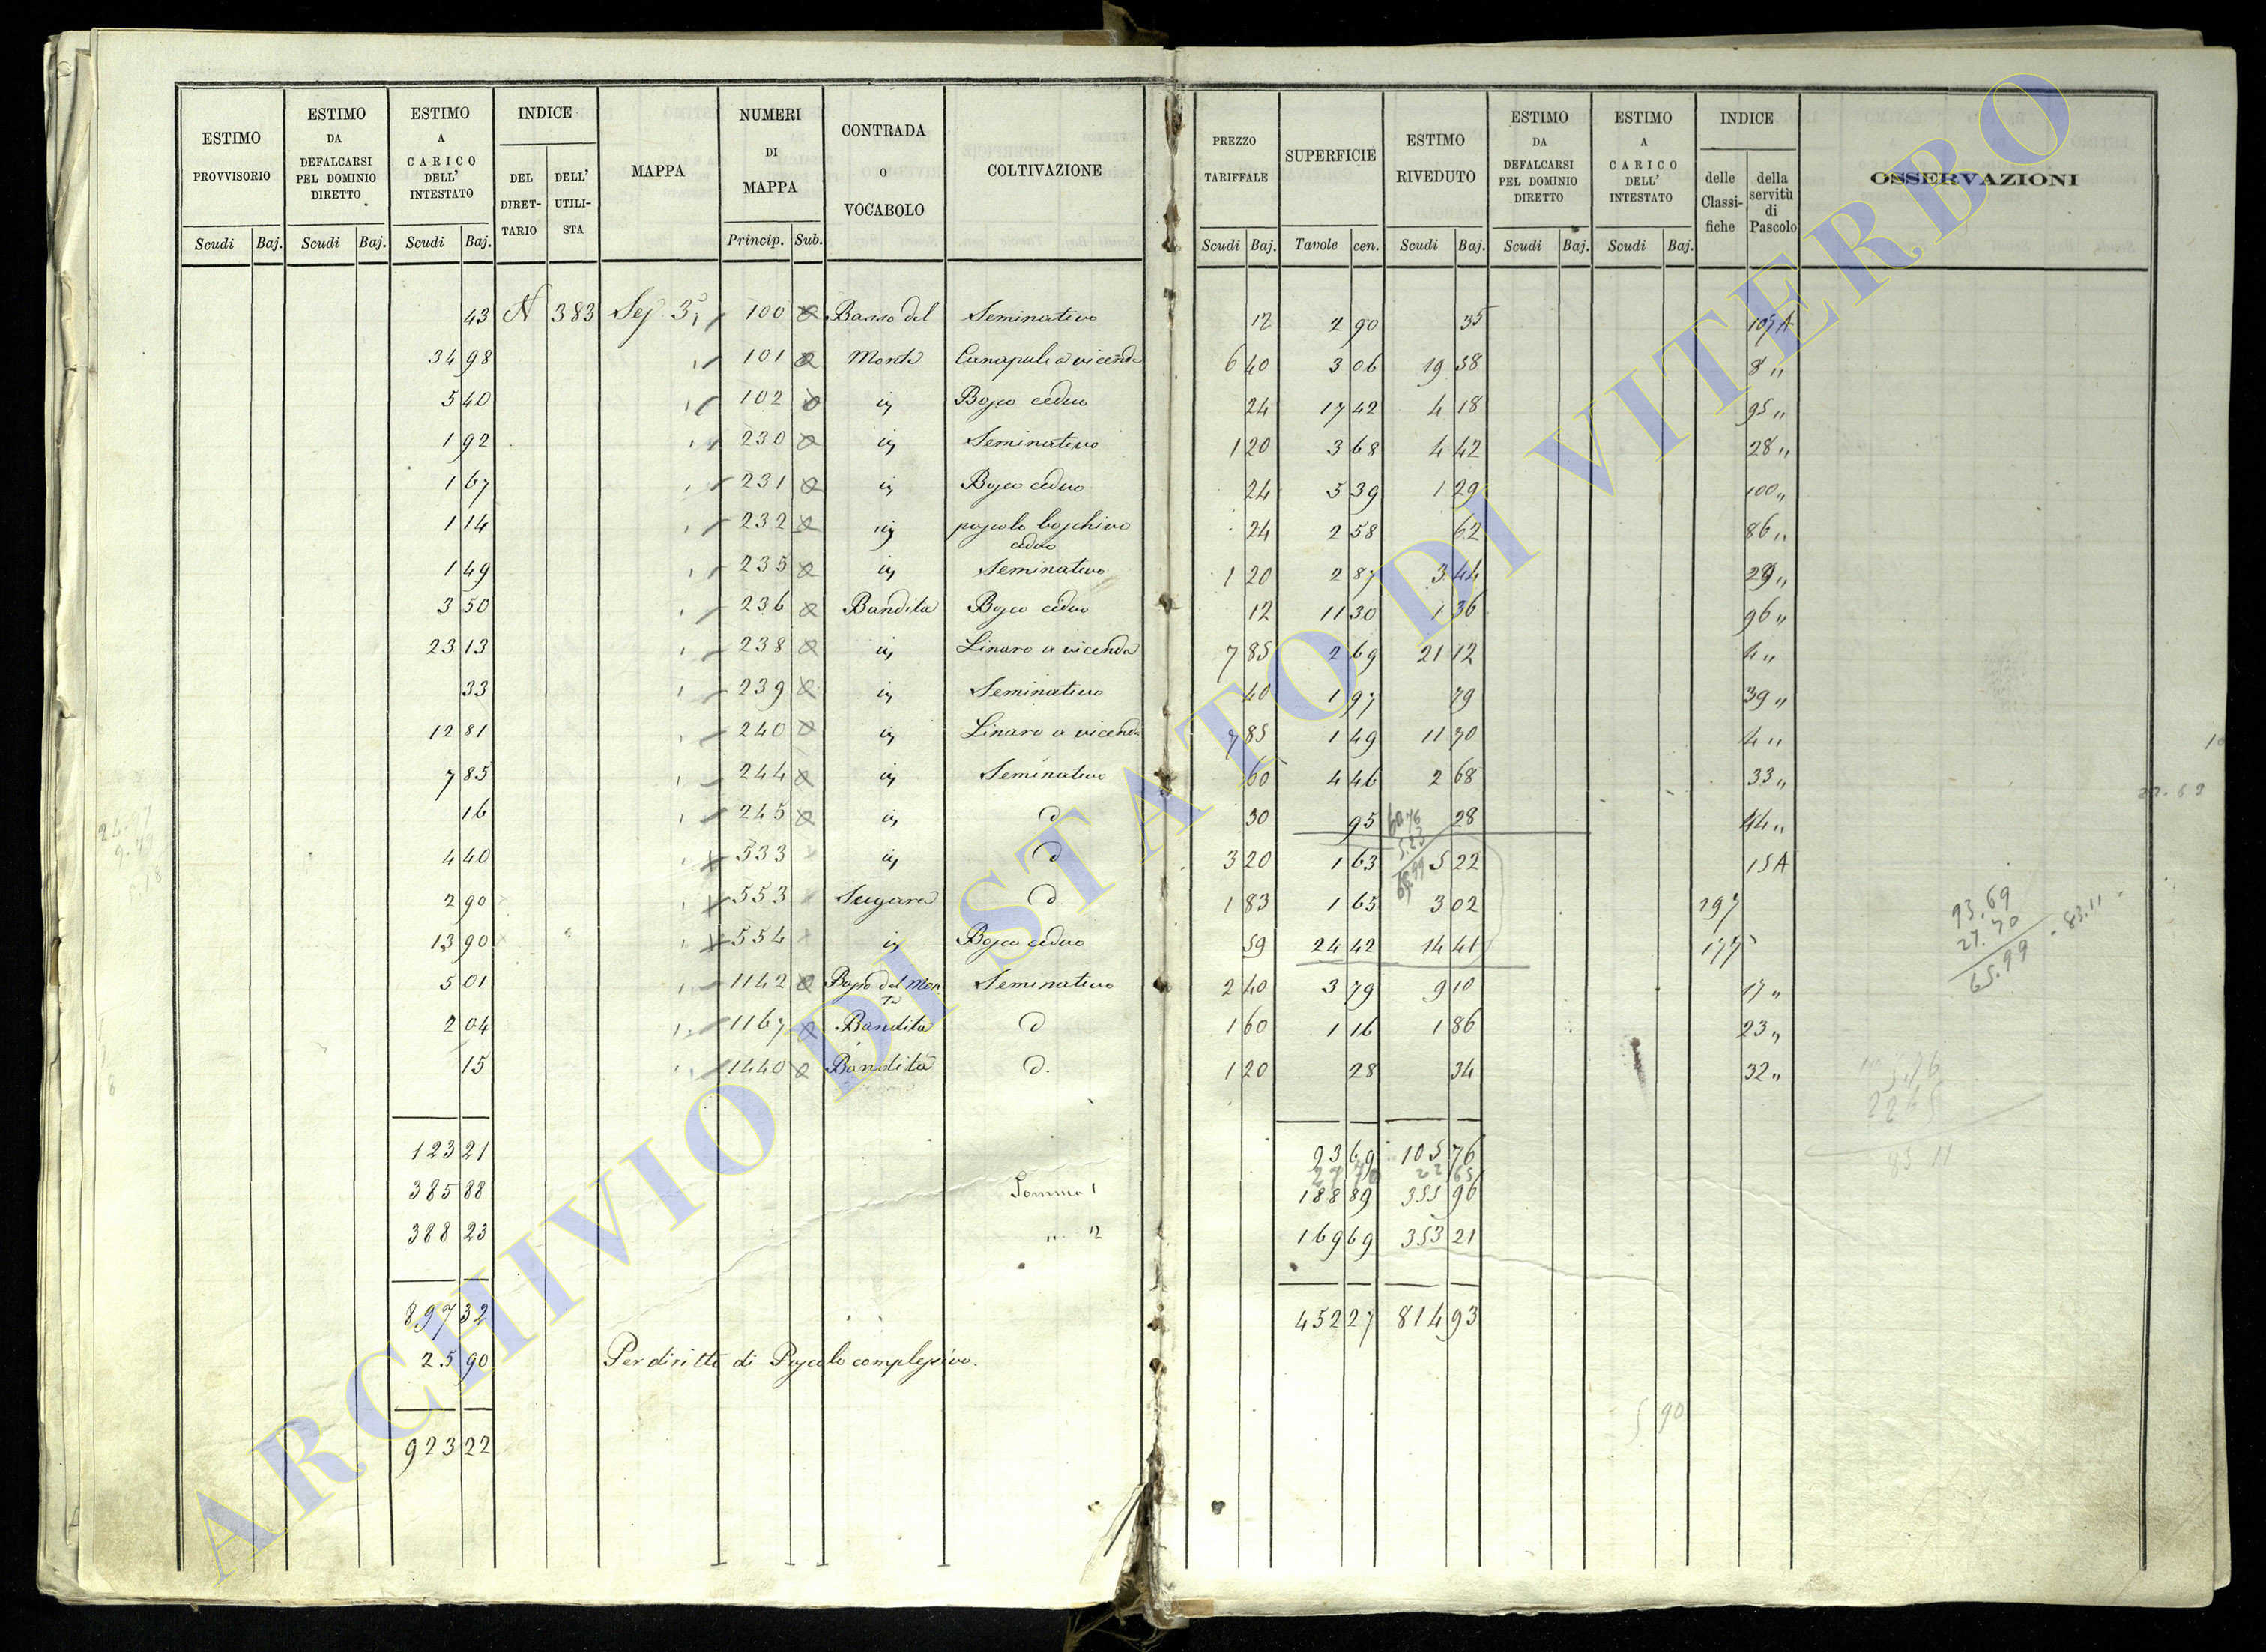 ESTIMO PROVVISORIO | ESTIMO DA DEFALCARSI PEL DOMINIO DIRETTO | ESTIMO A CARICO DELL' INTESTATO | INDICE | MAPPA | NUMERI DI MAPPA | CONTRADA O VOCABOLO | COLTIVAZIONE | PREZZO TARIFFALE | SUPERFICIE | ESTIMO RIVEDUTO | ESTIMO DA DEFALCARSI PEL DOMINIO DIRETTO | ESTIMO A CARICO DELL' INTESTATO | INDICE | OSSERVAZIONI
DEL DIRETTARIO | DELL' UTILISTA | delle Classifiche | della servitù di Pascolo
Scudi Baj. | Scudi Baj. | Scudi Baj. | Princip. Sub. | Scudi Baj. | Tavole cen. | Scudi Baj. | Scudi Baj. | Scudi Baj.
43 | N 383 | 100 | Basso del | Seminativo | 12 | 2 90 | 35
34 98 | 101 | Monte | Canapule a vicenda | 6 40 | 3 06 | 19 58 | 8 "
5 40 | 102 | Bosco ceduo | 24 | 17 42 | 4 18 | 95 "
1 92 | 230 | Seminativo | 1 20 | 3 68 | 4 42 | 28 "
1 67 | 231 | Bosco ceduo | 24 | 5 39 | 1 29 | 100 "
1 14 | 232 | pascolo boschivo ceduo | 24 | 2 58 | 62 | 86 "
1 49 | 235 | Seminativo | 1 20 | 2 87 | 3 44 | 29 "
3 50 | 236 | Bandita | Bosco ceduo | 12 | 11 30 | 1 36 | 96 "
23 13 | 238 | Linaro a vicenda | 7 85 | 2 69 | 21 12 | 4 "
33 | 239 | Seminativo | 40 | 1 97 | 79 | 39 "
12 81 | 240 | Linaro a vicenda | 7 85 | 1 49 | 11 70 | 4 "
7 85 | 244 | Seminativo | 60 | 4 46 | 2 68 | 33 "
16 | 245 | d | 30 | 95 | 28 | 44 "
4 40 | 533 | d | 3 20 | 1 63 | 5 22 | 15 A
2 90 | 553 | Sugara | d | 1 83 | 1 65 | 3 02 | 197
13 90 | 554 | Bosco ceduo | 59 | 24 42 | 14 41 | 177
5 01 | 1142 | Basso del Monte | Seminativo | 2 40 | 3 79 | 9 10 | 17 "
2 04 | 1167 | Bandita | d | 1 60 | 1 16 | 1 86 | 23 "
15 | 1440 | Bandita | d. | 1 20 | 28 | 34 | 32 "
123 21 | 93 69 | 105 76
27 70 | 22 65
385 88 | Somma 1 | 188 89 | 355 96
388 23 | " 12 | 169 69 | 353 21
897 32 | 452 27 | 814 93
25 90 | Per diritto di Pascolo complessivo.
923 22
93.69
27.70
65.99 - 83.11
22 65
83 11
5 90
ARCHIVIO DI STATO DI VITERBO